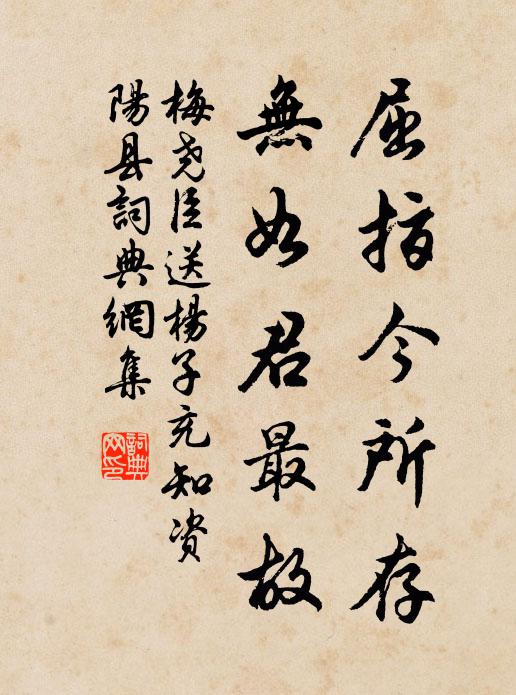 屈指今所存
無如君最故
梅尧臣送楊子充知资
陽县詞典網集
詞典网印